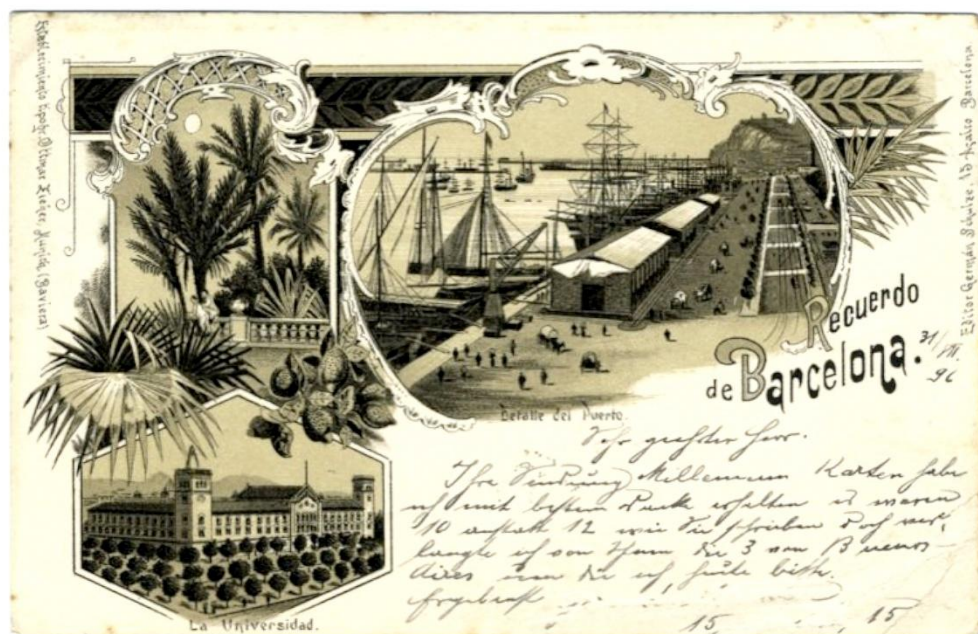 Establecimiento tipolit. Ottmar Zieher, Munich, (Baviera)
Editor Germán Schultze Abogado Barcelona
Recuerdo
de Barcelona.
31/VII.
96
Detalle del Puerto.
La Universidad.
Sehr geehrter Herr.
Ihre Sendung Millennium Karten habe
ich mit bestem Danke erhalten es waren
10 anstatt 12 wie Sie schrieben doch ver-
langte ich von Ihnen die 3 von Buenos-
Aires um die ich heute bitte.
Ergebenst
15 15